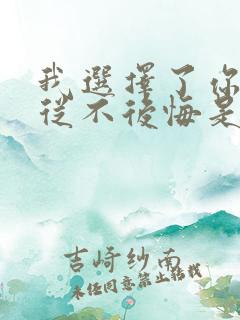 我選擇了你
從不後悔是
吉崎紗南
未经同意禁止转载